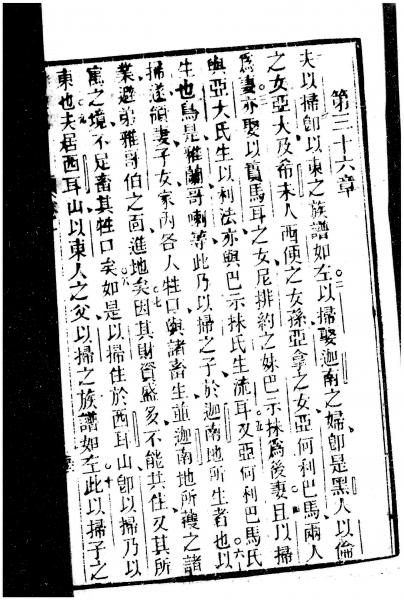 第三十六章
夫以掃卽以東之族譜如左以掃娶迦南之婦卽是黑人以倫
之女亞大及希未人西便之女孫亞拿之女亞何利巴馬兩人
爲妻亦娶以實馬耳之女尼排約之妹巴示抹爲後妻且以掃
與亞大氏生以利法亦與巴示抹氏生流耳又亞何利巴馬氏
生也鳥是雅蘭哥喇等此乃以掃之子於迦南地所生者也以
掃遂領妻子女家內各人牲口與諸畜生並迦南地所獲之諸
業避弟雅哥伯之面進地矣因其財資盛多不能共住又其所
寓之境不足畜其牲口矣如是以掃住於西耳山卽以掃乃以
東也夫居西耳山以東人之父以掃之族譜如左此以掃子之